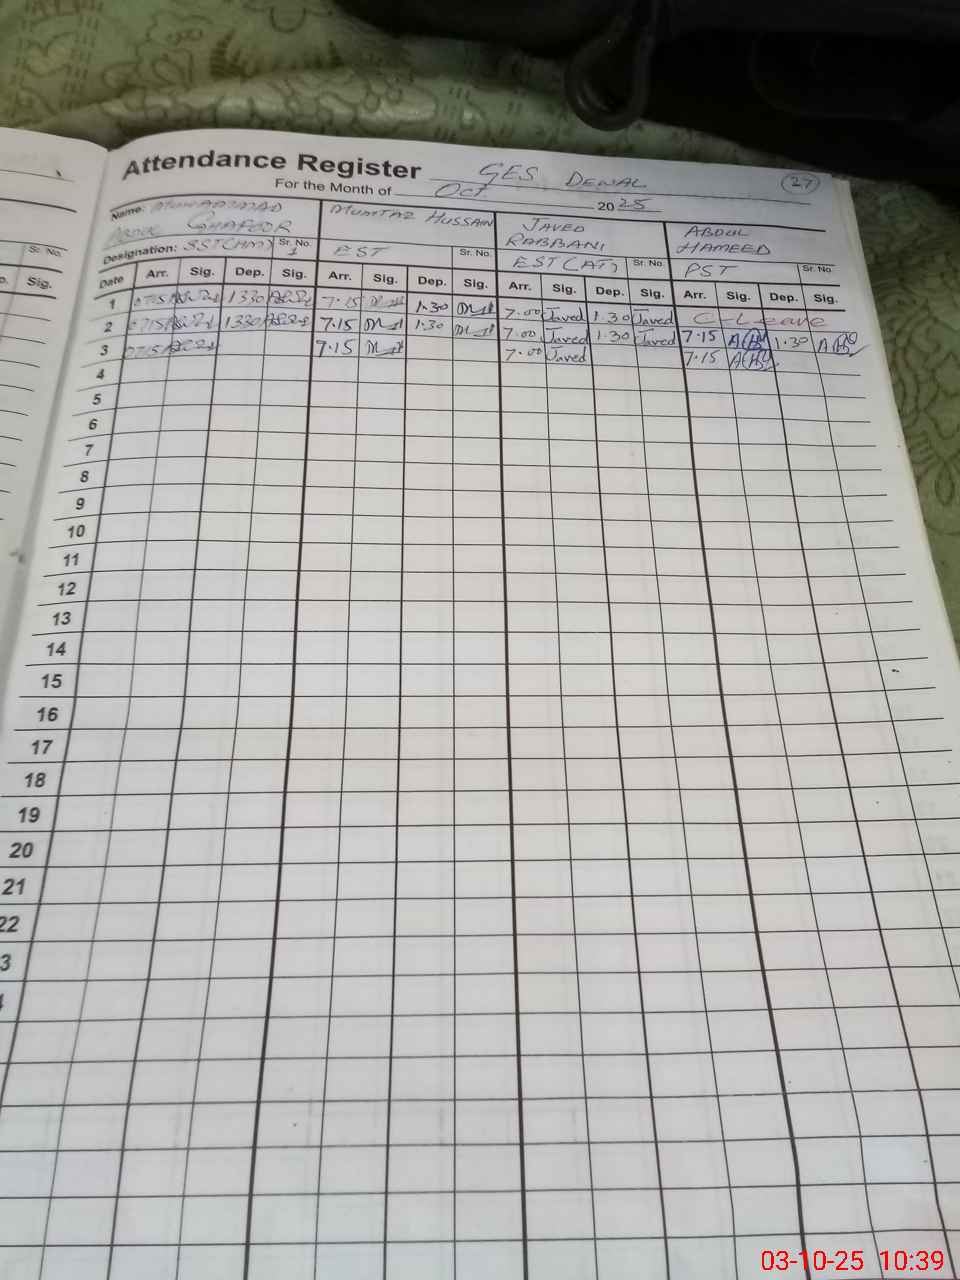 Attendance Register GES DEWAL 27
For the Month of Oct 2025
Name: MUHAMMAD MUMTAZ HUSSAIN JAVED ABDUL
ABDUL GHAFOOR RABBANI HAMEED
Designation: SST(HM) Sr. No. 1 EST Sr. No. EST (AT) Sr. No. PST Sr. No.
Date Arr. Sig. Dep. Sig. Arr. Sig. Dep. Sig. Arr. Sig. Dep. Sig. Arr. Sig. Dep. Sig.
1 0715 1330 7.15 1.30 7.00 Javed 1.30 Javed C-Leave
2 0715 1330 7.15 1.30 7.00 Javed 1.30 Javed 7.15 1.30
3 0715 7.15 7.00 Javed 7.15
4
5
6
7
8
9
10
11
12
13
14
15
16
17
18
19
20
21
22
3
Sr. No.
Sig.
03-10-25 10:39